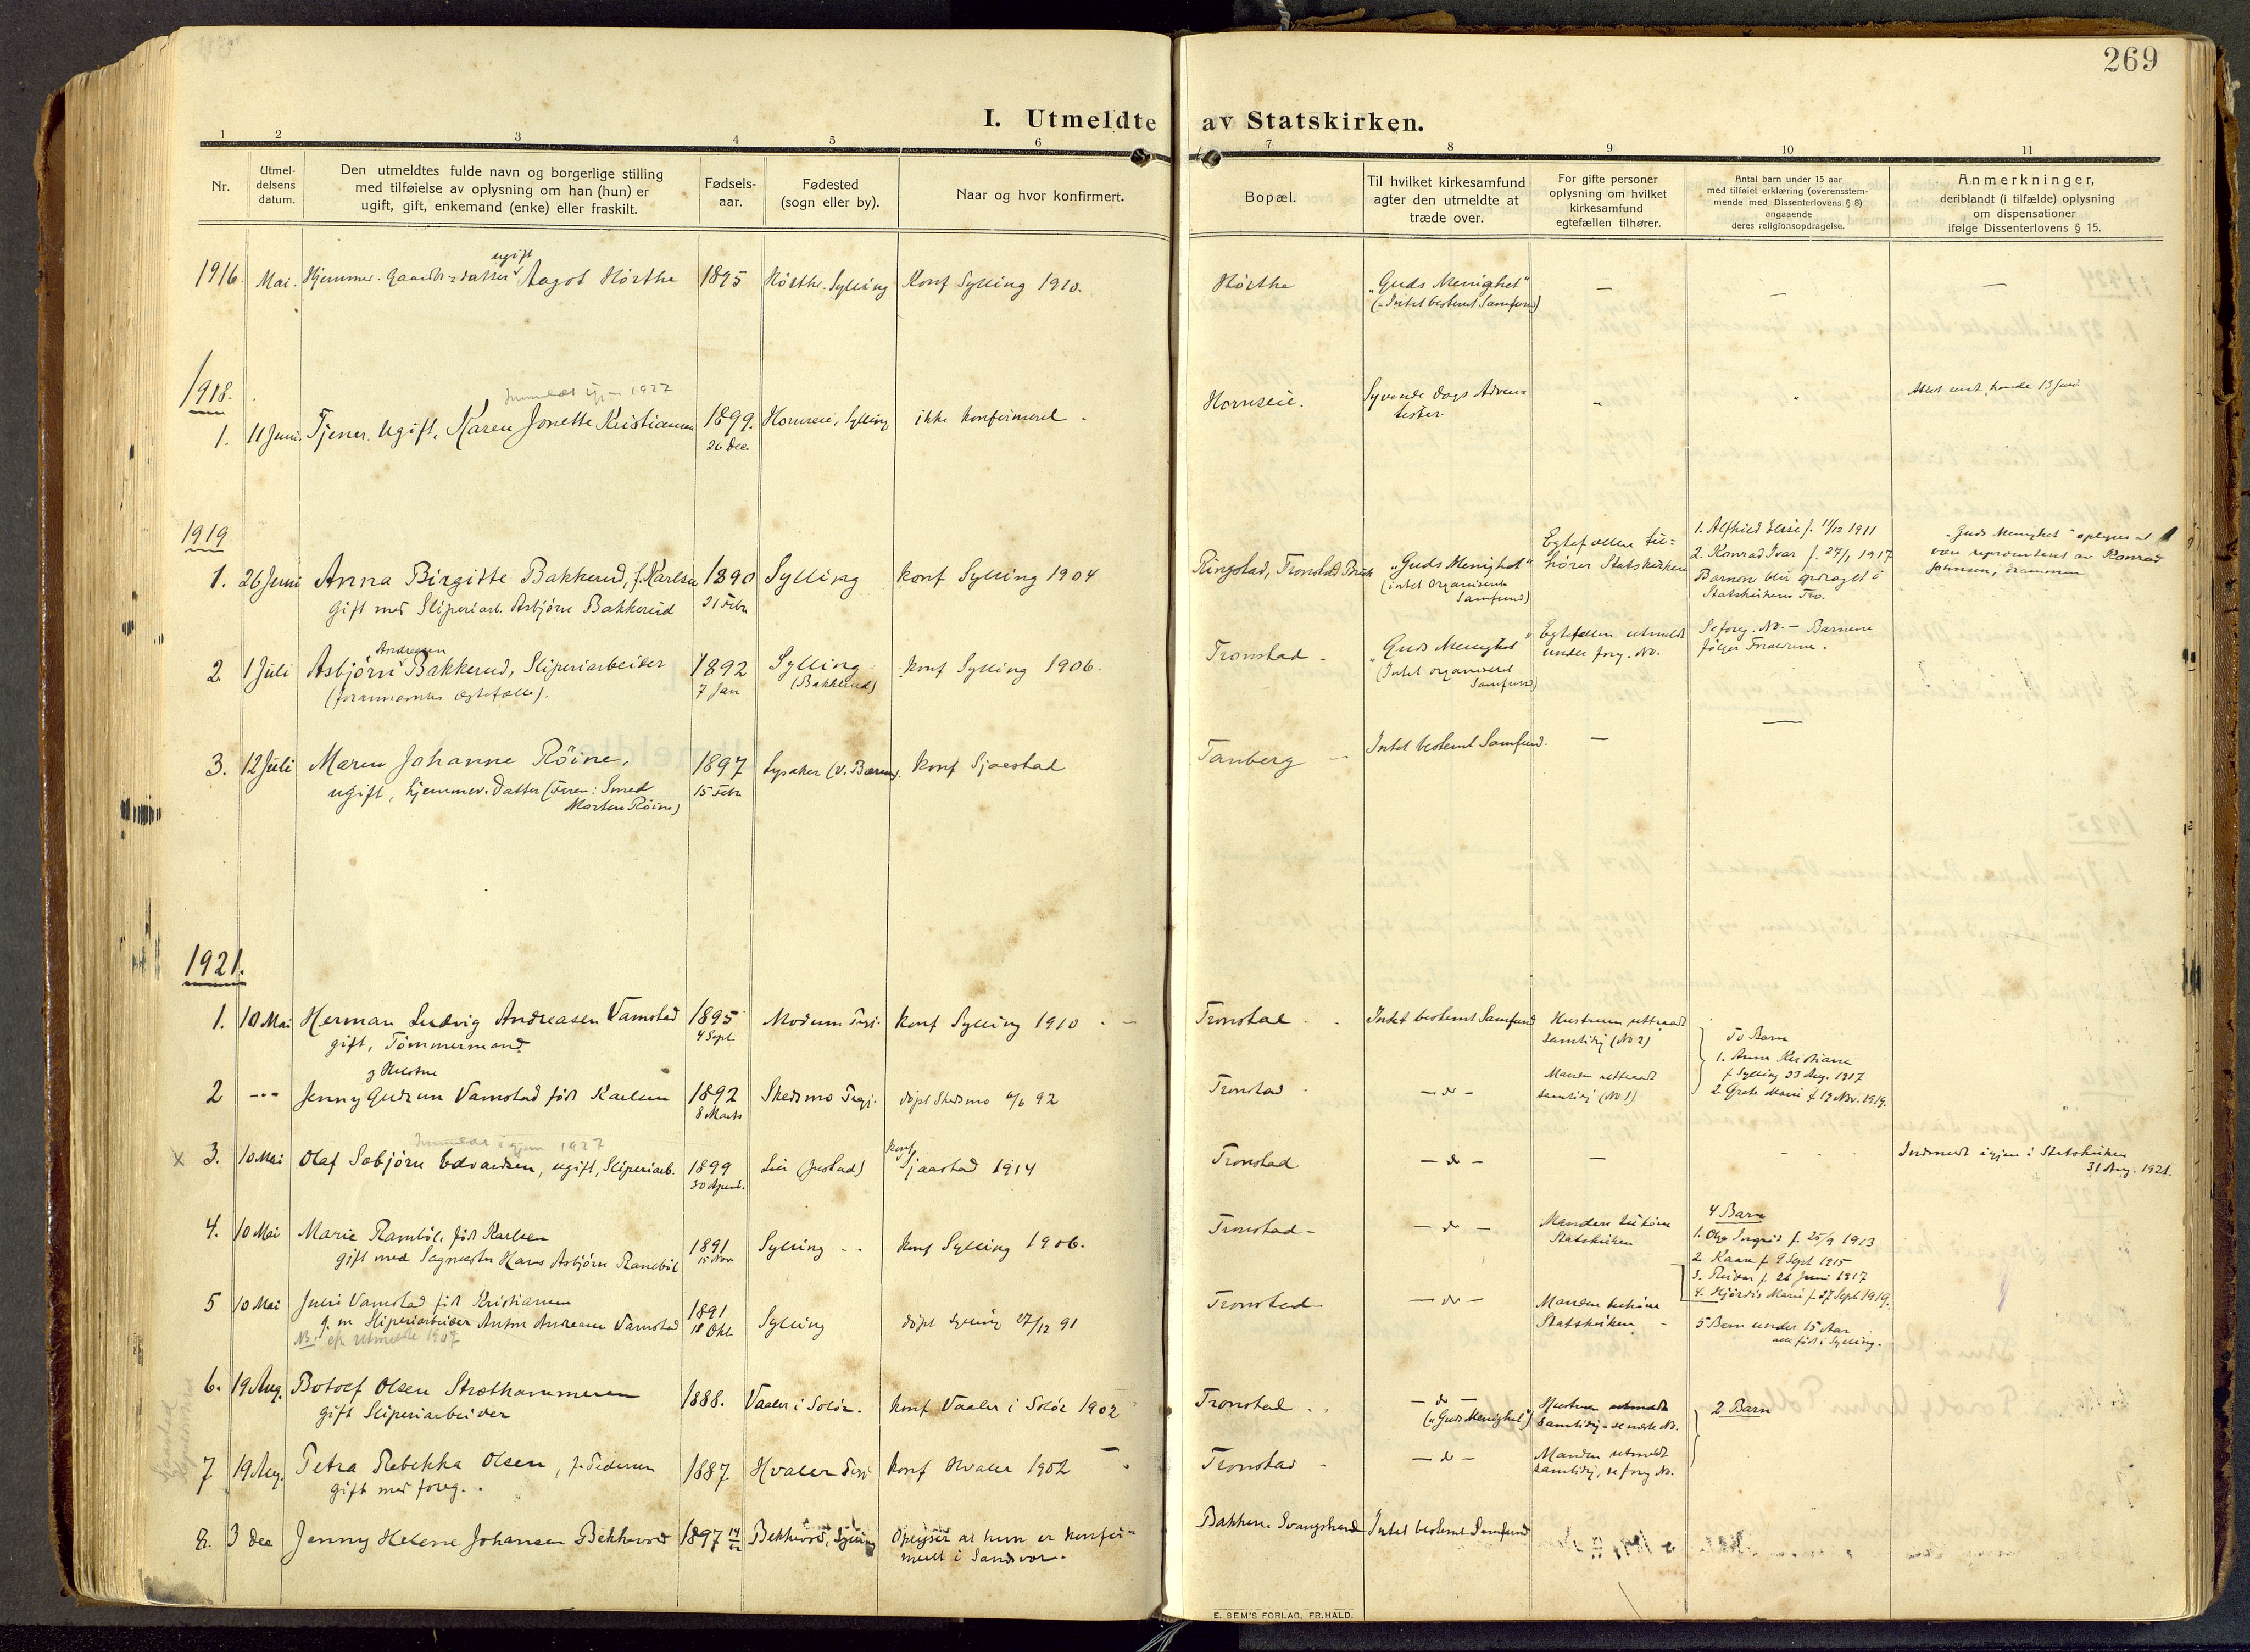 269
I. Utmeldte av Statskirken.
1 2 3 4 5 6 7 8 9 10 11
Nr.
Utmel-
delsens
datum.
Den utmeldtes fulde navn og borgerlige stilling
med tilføielse av oplysning om han (hun) er
ugift, gift, enkemand (enke) eller fraskilt.
Fødsels-
aar.
Fødested
(sogn eller by).
Naar og hvor konfirmert.
Bopæl.
Til hvilket kirkesamfund
agter den utmeldte at
træde over.
For gifte personer
oplysning om hvilket
kirkesamfund
egtefællen tilhører.
Antal barn under 15 aar
med tilføiet erklæring (overensstem-
mende med Dissenterlovens § 8)
angaaende
deres religionsopdragelse.
Anmerkninger,
deriblandt (i tilfælde) oplysning
om dispensationer
ifølge Dissenterlovens § 15.
1916. Mai. Hjemmev. Gaardbr.datter ugift Aagot Hörthe 1895 Hörthe. Sylling Konf Sylling 1910. Hörthe „Guds Menighet"
(Intet bestemt Samfund)
1918.
1. 11 Juni. Tjener. Ugift. Karen Jonette Kristiansen 1899. Hornseie, Sylling ikke konfirmeret. Hornseie. Syvende Dags Adven-
tister.
26 Dec.
Indmeldt igjen 1927
13 Juni
1919
1. 26 Juni Anna Birgitte Bakkerud, f. Karlsen 1890 Sylling Konf Sylling 1904 Ringstad, Tronstad Bruk „Guds Menighet" Egtefællen til-
hører Statskirken
gift med Sliperiarb. Asbjörn Bakkerud 21 Febr (intet organisert
Samfund)
1. Alfhild Elsie f. 11/12 1911
2. Konrad Ivar f. 27/1 1917
Barnene blir opdraget i
Statskirkens Tro.
„Guds Menighet" oplyses at
være representeret av Konrad
Johnsen, Drammen
2. 1 Juli Asbjörn Andreasen Bakkerud, Sliperiarbeider 1892 Sylling Konf Sylling 1906. Tronstad „Guds Menighet" Egtefællen utmeldt
under foreg. No.
(forannævntes Egtefælle). 7 Jan (Bakkerud) (Intet organisert
Samfund)
Se foreg. No. – Barnene
følger Forældrene.
3. 12 Juli Maren Johanne Röine, 1897 Lysaker (V. Bærum) Konf Sjaastad Tanberg Intet bestemt Samfund. –
ugift, hjemmev. Datter (Faren: Smed
Morten Röine) 15 Febr
1921.
1. 10 Mai Herman Ludvig Andreasen Vamstad 1895 Modum Konf Sylling 1910 Tronstad Intet bestemt Samfund Hustruen uttraadt
samtidig (No 2)
gift, Tömmermand 4 Sept
To Barn
1. Anna Kristiane
f Sylling 23 Aug. 1917
2. Grete Marie f 19 Nov. 1919.
2 --- Jenny Gudrun Vamstad født Karlsen 1892 Skedsmo döpt Skedsmo 92 Tronstad – do – Manden uttraadt
samtidig (No 1)
g Hustru
8 Marts
x 3. 10 Mai Olaf Sobjörn Edvardsen, ugift, Sliperiarb. 1899 Lier konf Sjaastad 1914 Tronstad – do – –
Indmeldt igjen 1927
30 April.
Indmeldt igjen i Statskirken
31 Aug. 1921.
4. 10 Mai Marie Ramböl, född Karlsen 1891 Sylling Konf Sylling 1906. Tronstad – do – Manden tilhører
Statskirken
gift med Sagmester Hans Asbjörn Ramböl 15 Nov
4 Barn
1. Olga Ingrid f. 25/9 1913
2. Kaare f. 9 Sept 1915
3. Reidar f. 26 Juni 1917
4. Hjördis Marie f. 27 Sept 1919.
5 10 Mai Julie Vamstad född Kristiansen 1891 Sylling döpt Sylling 27/12 91 Tronstad – do – Manden tilhører
Statskirken
g. m Sliperiarbeider Anton Andreasen Vamstad 18 Okt
NB. utmeldte 1907
5 Barn under 15 Aar
alle født i Sylling.
6. 19 Aug. Botolf Olsen Stræthammeren 1888. Vaaler i Solör. Konf Vaaler i Solör 1902 Tronstad – do –
(„Guds Menighet") Hustruen utmeldt
samtidig – se næste No.
gift Sliperiarbeider
2 Barn
7 19 Aug. Petra Rebekka Olsen, f. Pedersen 1887. Hvaler Konf Hvaler 1902 Tronstad – do – Manden utmeldt
samtidig, se foreg No.
gift med foreg.
8. 3 Dec Jenny Helene Johansen Bekkevold 1897 Bekkevold, Sylling Oplyser at hun er konfir-
meret i Sandsvær. Bakkene Svangstrand Intet bestemt Samfund
E. SEM'S FORLAG, FR.HALD.